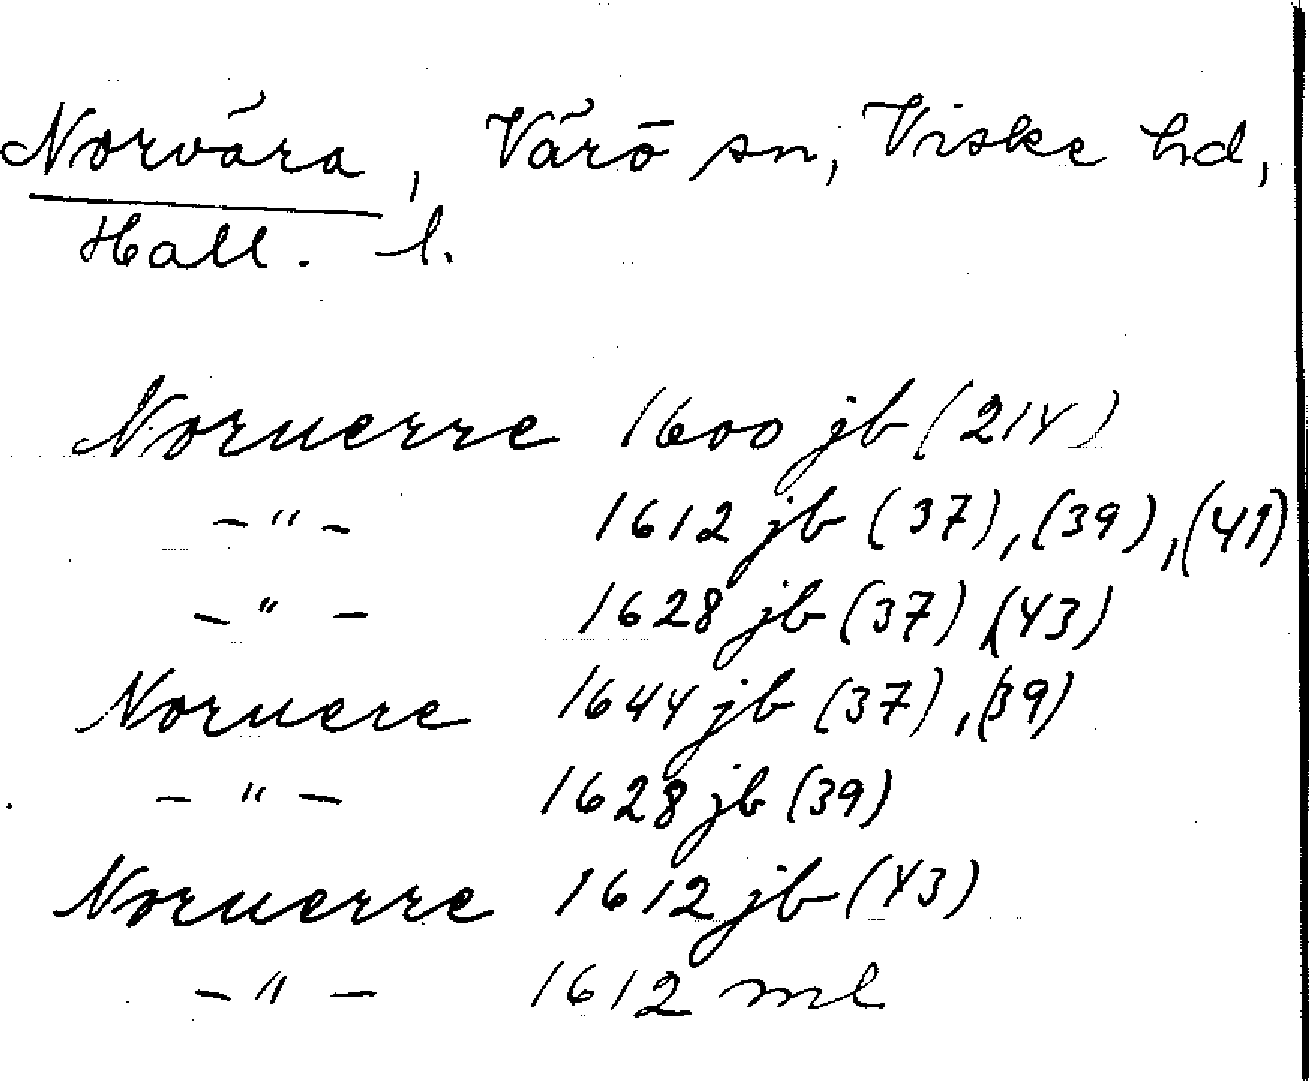 Norvära, Värö sn, Viske hd,
Hall. l.
Noruerre 1600 jb (214)
-"- 1612 jb (37), (39), (41)
-"- 1628 jb (37), (43)
Noruere 1644 jb (37), (39)
-"- 1628 jb (39)
Noruerre 1612 jb (43)
-"- 1612 ml